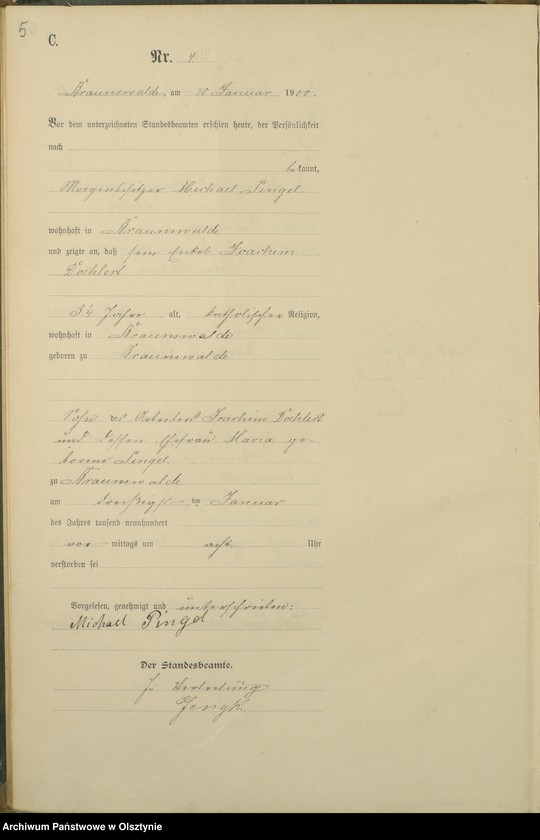 5
C.
Nr. 4.
Braunswalde, am 30 Januar 1900.
Vor dem unterzeichneten Standesbeamten erschien heute, der Persönlichkeit
nach
be kannt,
Morgenbesitzer Michael Pingel
wohnhaft in Braunswalde
und zeigte an, daß sein Enkel Joachim
3¼ Jahre alt, katholischer Religion,
wohnhaft in Braunswalde
geboren zu Braunswalde
Sohn des Arbeiters Joachim
und dessen Ehefrau Maria ge-
borene Pingel
zu Braunswalde
am dreißigsten Januar
des Jahres tausend neunhundert
vor mittags um acht Uhr
verstorben sei
Vorgelesen, genehmigt und unterschrieben:
Michael Pingel
Der Standesbeamte.
In Vertretung
Archiwum Państwowe w Olsztynie